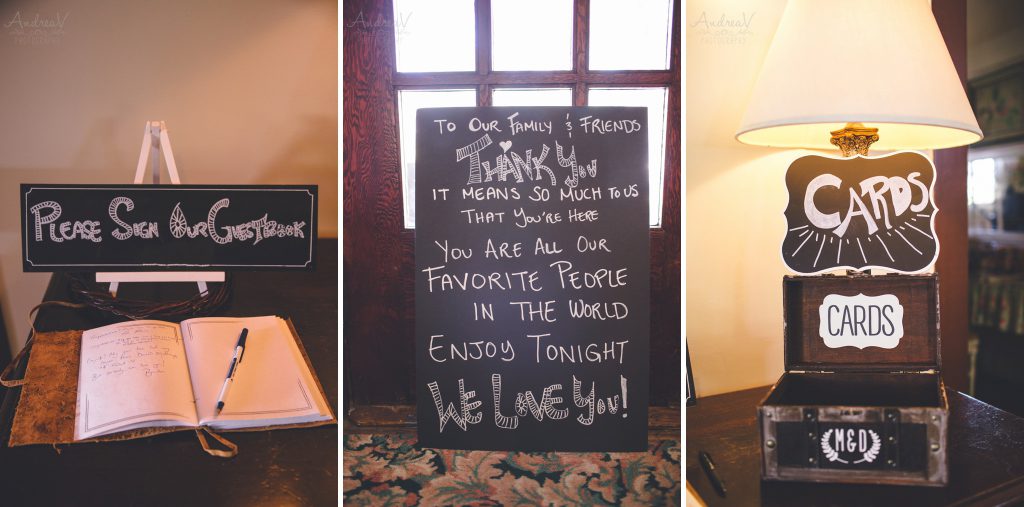 AndreaV
PHOTOGRAPHY
Please Sign Our Guestbook
To Our Family & Friends
Thank You
It means so much to us
that you're here
You are all our
Favorite People
in the world
Enjoy Tonight
We Love You!
AndreaV
PHOTOGRAPHY
AndreaV
PHOTOGRAPHY
CARDS
CARDS
M&D